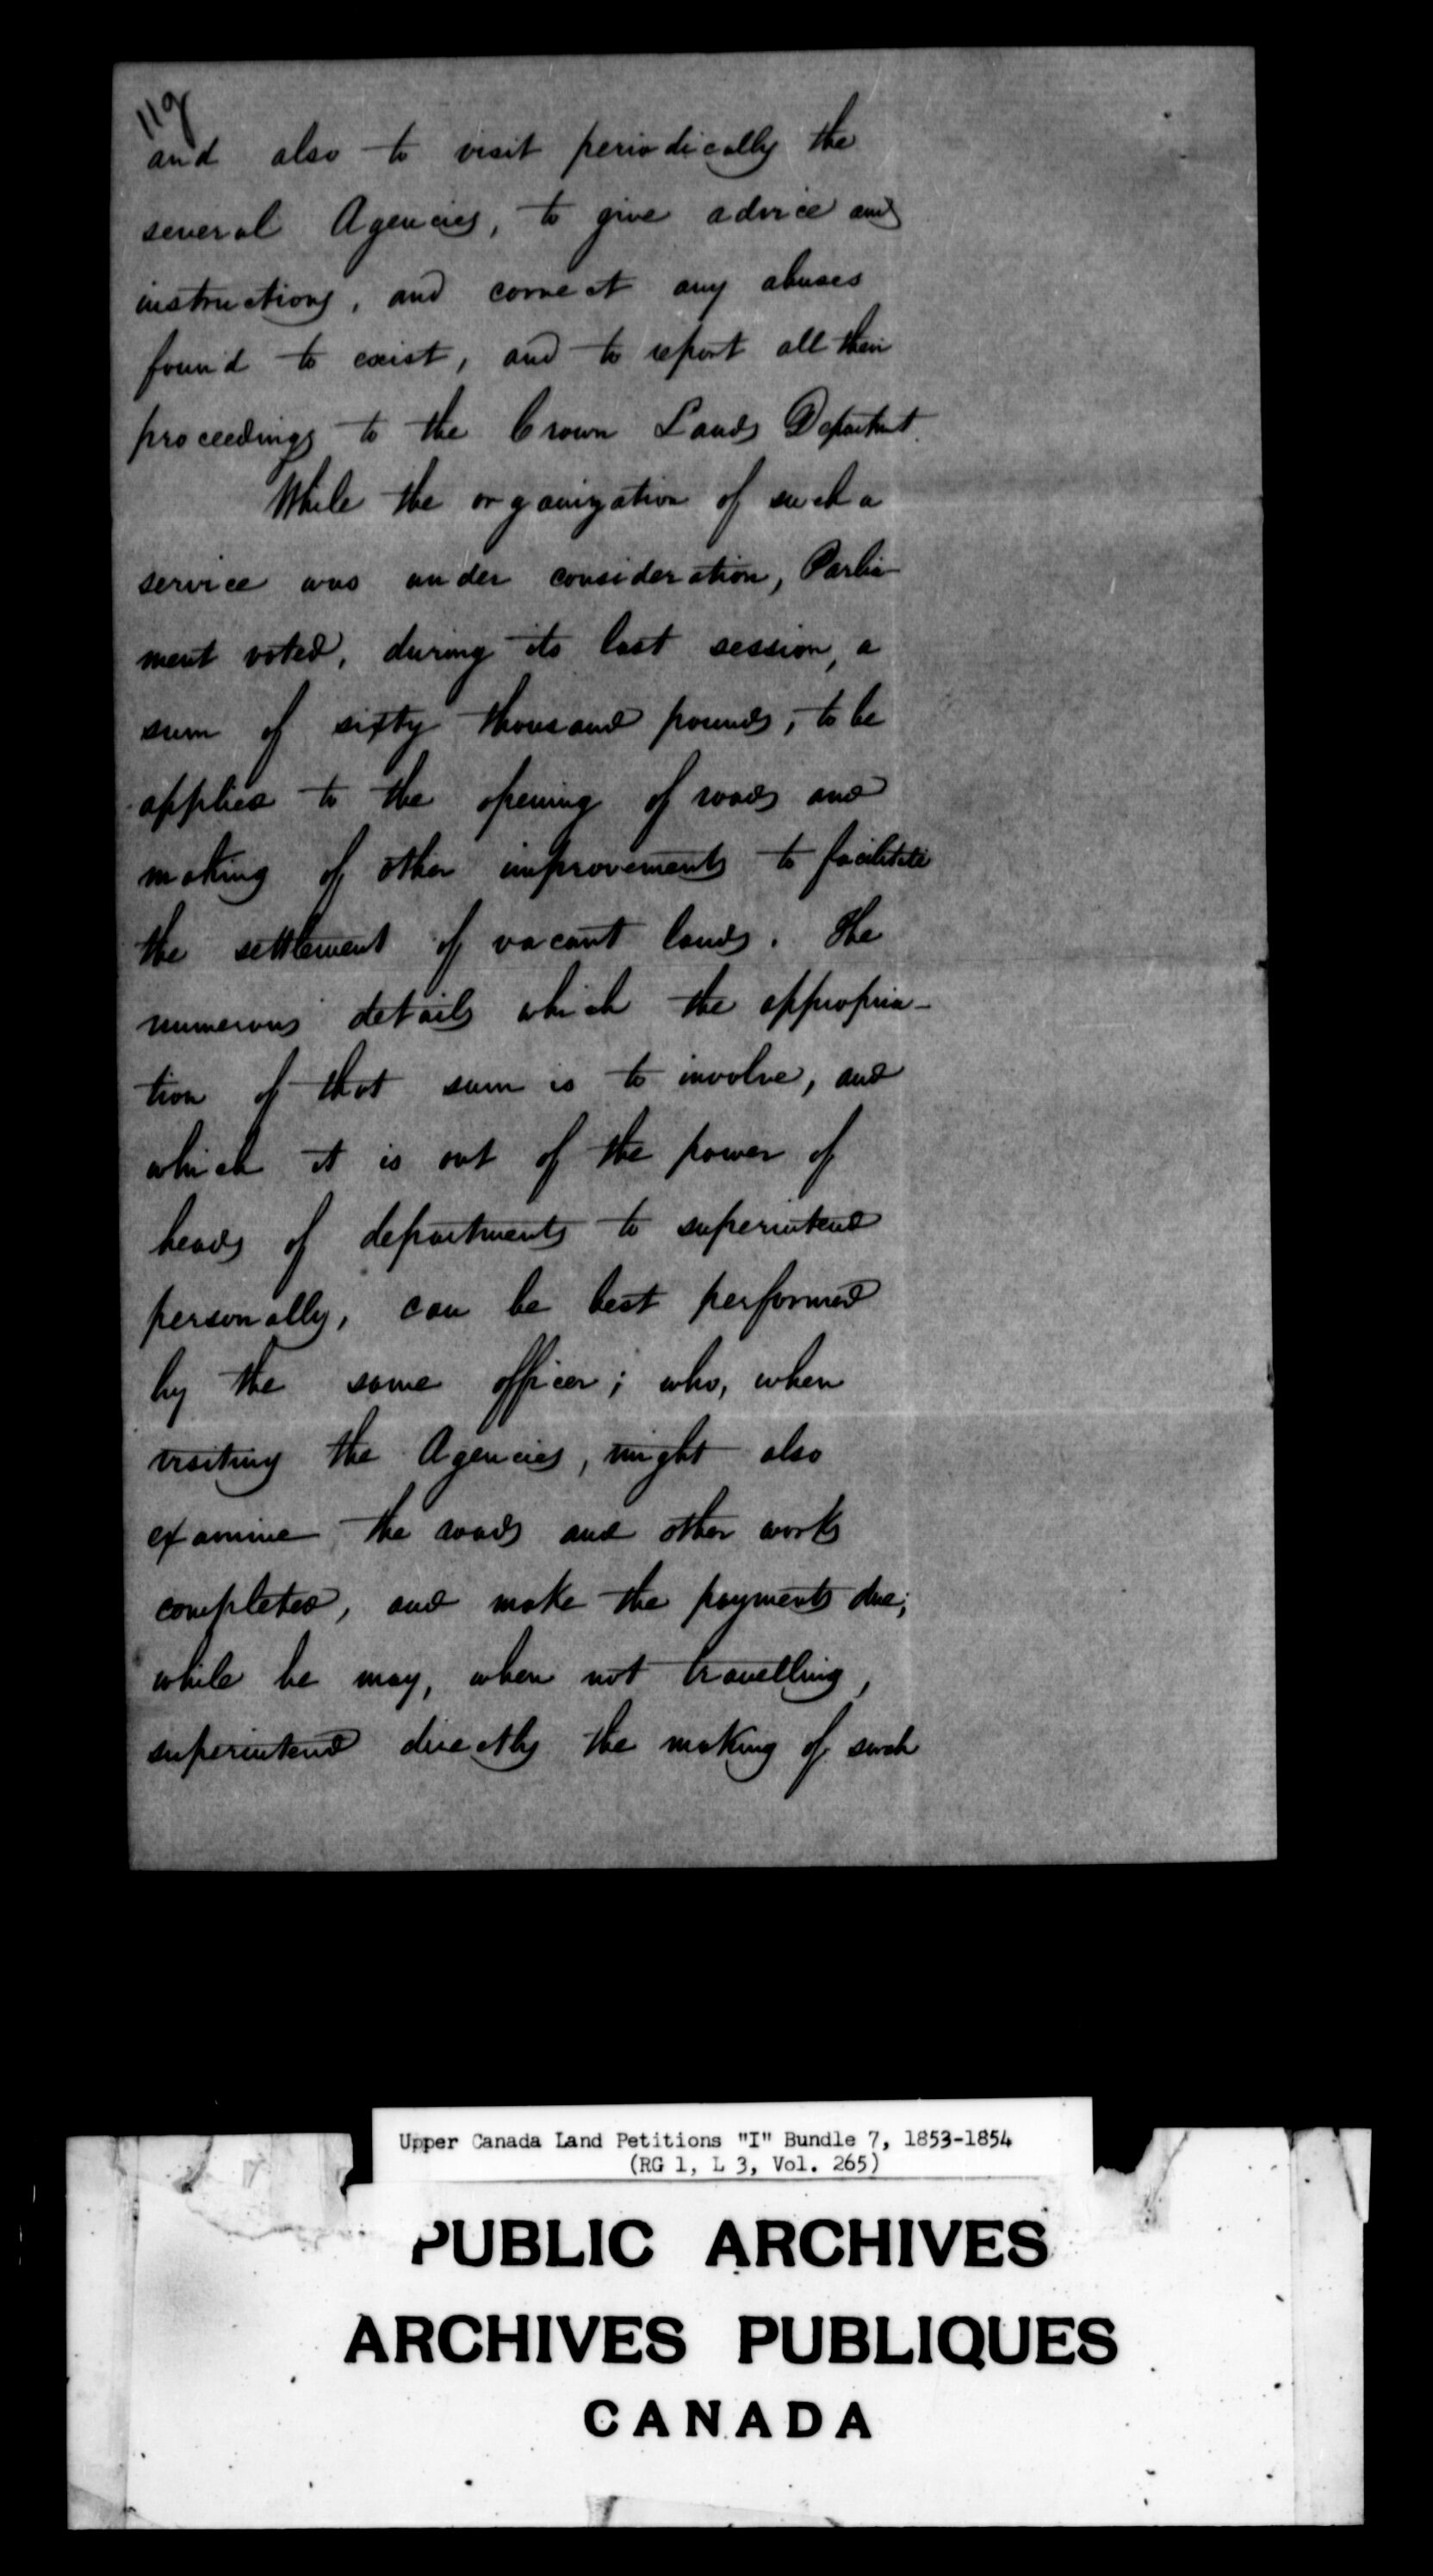 11g
and also to visit periodically the
several Agencies, to give advice and
instructions, and correct any abuses
found to exist, and to report all their
proceedings to the Crown Lands Department.
While the organization of such a
service was under consideration, Parlia-
ment voted, during its last session, a
sum of sixty thousand pounds, to be
applied to the opening of roads and
making of other improvements to facilitate
the settlement of vacant lands. The
numerous details which the appropria-
tion of that sum is to involve, and
which it is out of the power of
heads of departments to superintend
personally, can be best performed
by the same officer; who, when
visiting the Agencies, might also
examine the roads and other works
completed, and make the payments due;
while he may, when not travelling,
superintend directly the making of such
Upper Canada Land Petitions "I" Bundle 7, 1853-1854
(RG 1, L 3, Vol. 265)
PUBLIC ARCHIVES
ARCHIVES PUBLIQUES
CANADA